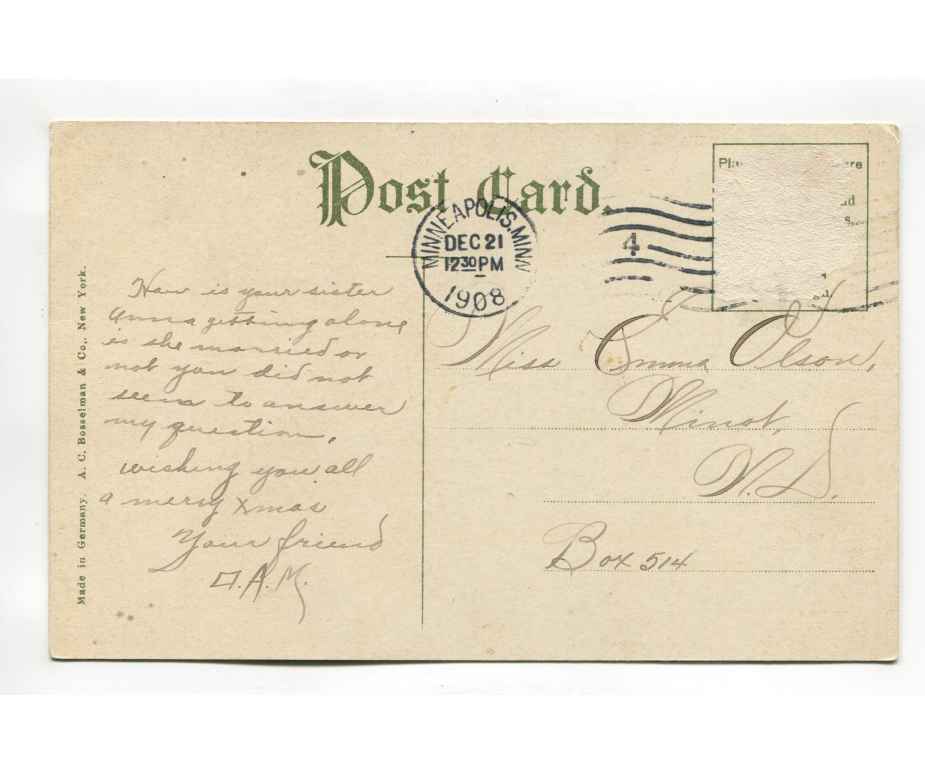 Post Card.
MINNEAPOLIS, MINN
DEC 21
12 30 PM
1908
4
Made in Germany. A. C. Bosselman & Co., New York.
How is your sister
Anna getting alone
is she married or
not you did not
seem to answer
my question.
wishing you all
a merry Xmas
Your friend
A.M.
Miss Emma Olson,
Minot,
N.D.
Box 514